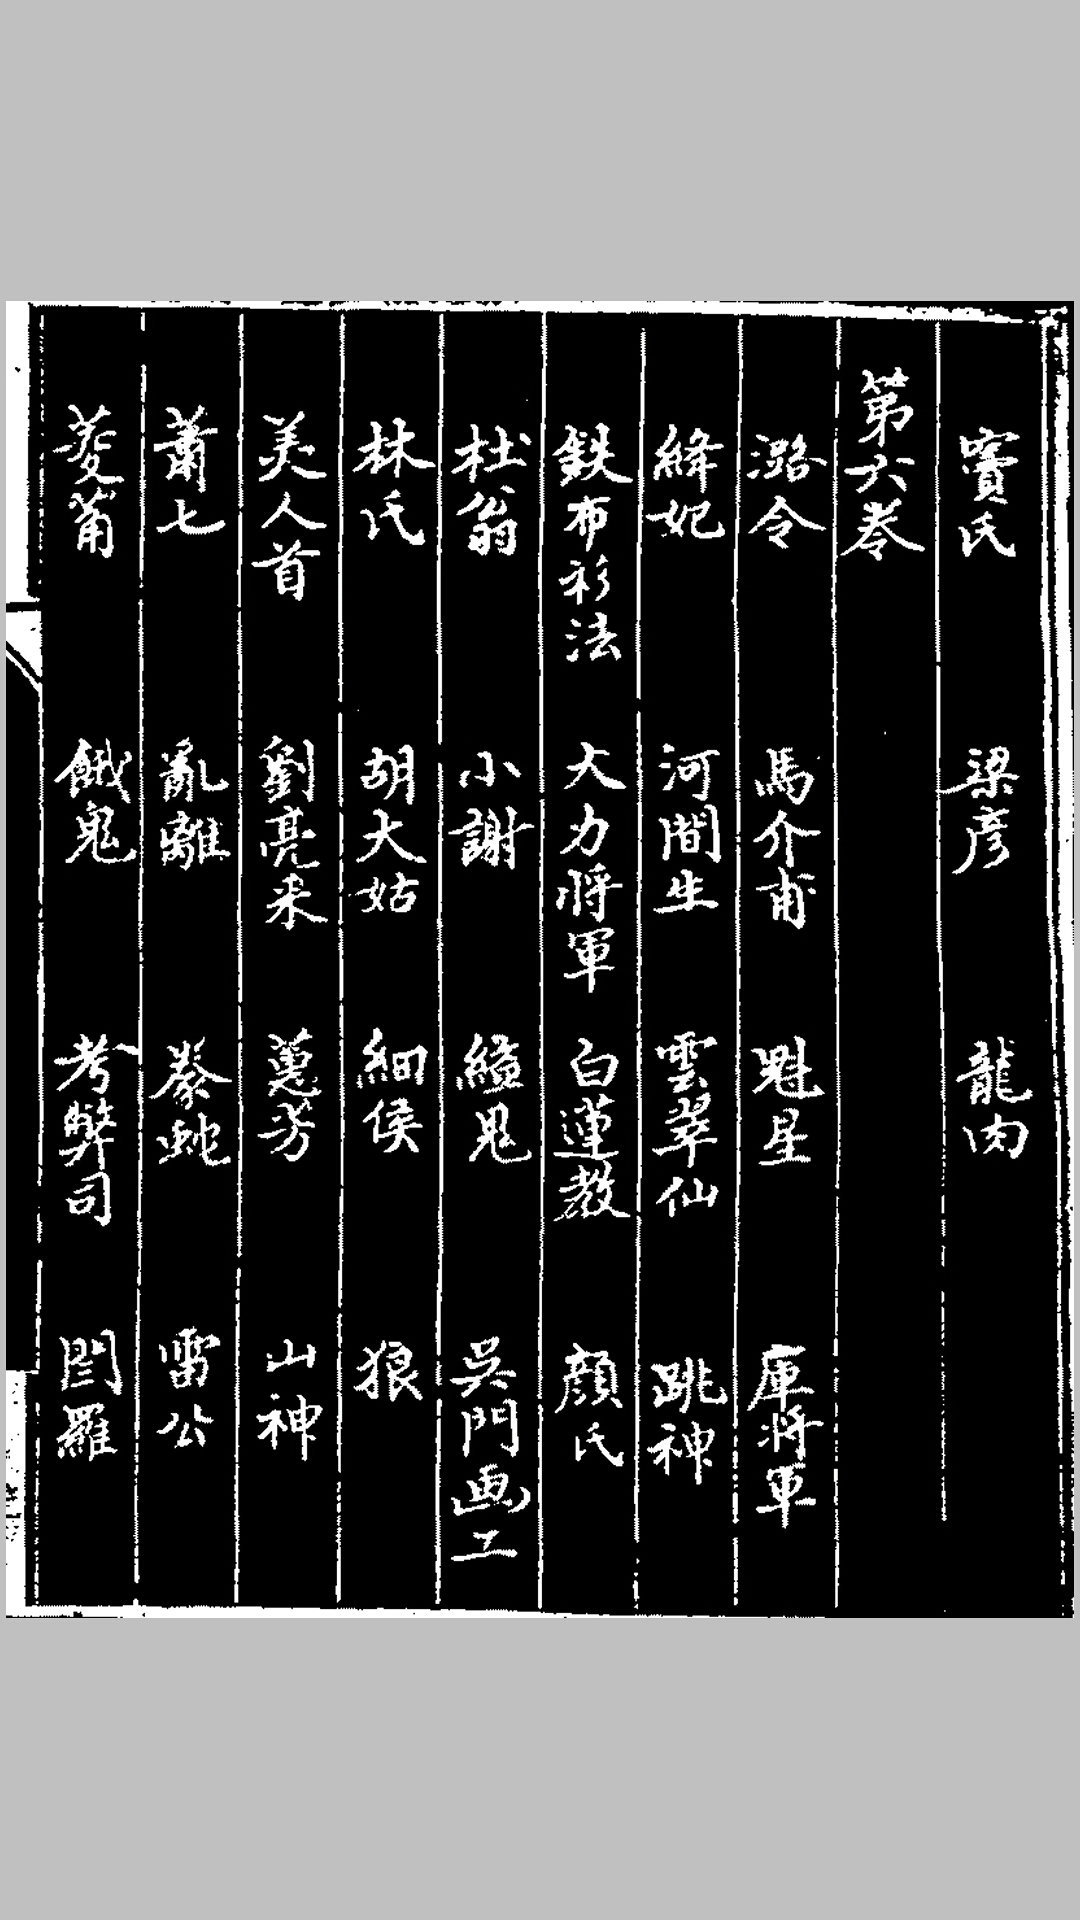 竇氏　梁彥　龍肉
第六卷
潞令　馬介甫　魁星　庫將軍
絳妃　河間生　雲翠仙　跳神
鉄布衫法　大力將軍　白蓮教　顔氏
杜翁　小謝　縊鬼　吳門画工
林氏　胡大姑　細侯　狼
美人首　劉亮采　蕙芳　山神
蕭七　亂離　豢蛇　雷公
菱角　餓鬼　考弊司　閻羅